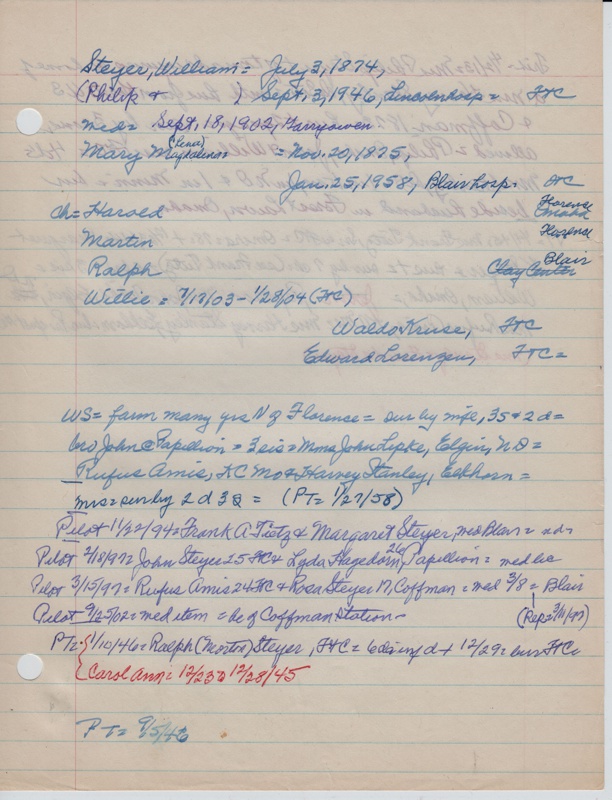 Steyer, William = July 3, 1874,
(Philip + ) Sept. 3, 1946, Lincoln hosp = FtC
med = Sept. 18, 1902, Harryowen =
(Lena)
Mary Magdalena = = Nov. 20, 1875,
Jan. 25, 1958, Blair hosp = FtC
ch = Harold Florence Omaha
Martin Florence
Ralph Blair Clay Center
Willie = 7/18/03 - 1/28/04 (FtC)
Waldo Kruse, FtC
Edward Lorenzen, FtC =
WS = farm many yrs N of Florence = sur by wife, 3 s + 2 d =
bro John @ Papillion = 3 sis = Mmes John Lipke, Elgin, ND =
Rufus Amis, KC Mo + Harvey Stanley, Elkhorn =
mrs = sur by 2 d 3 s = (PT = 1/27/58)
Pilot 11/22/94 = Frank A Tietz + Margaret Steyer, med Blair =
Pilot 2/18/97 = John Steyer 25 FtC + Lyda Hagedorn, 26 Papillion = med lic
Pilot 3/15/97 = Rufus Amis 24 FtC + Rosa Steyer 17, Coffman = med 3/8 = Blair
Pilot 9/25/02 = med item = he of Coffman Station = (Rep = 3/11/97)
PT = 1/10/46 = Ralph (Morton) Steyer, FtC = d + 12/29 = bur FtC =
Carol Ann = 12/23 12/28/45
PT = 9/5/46